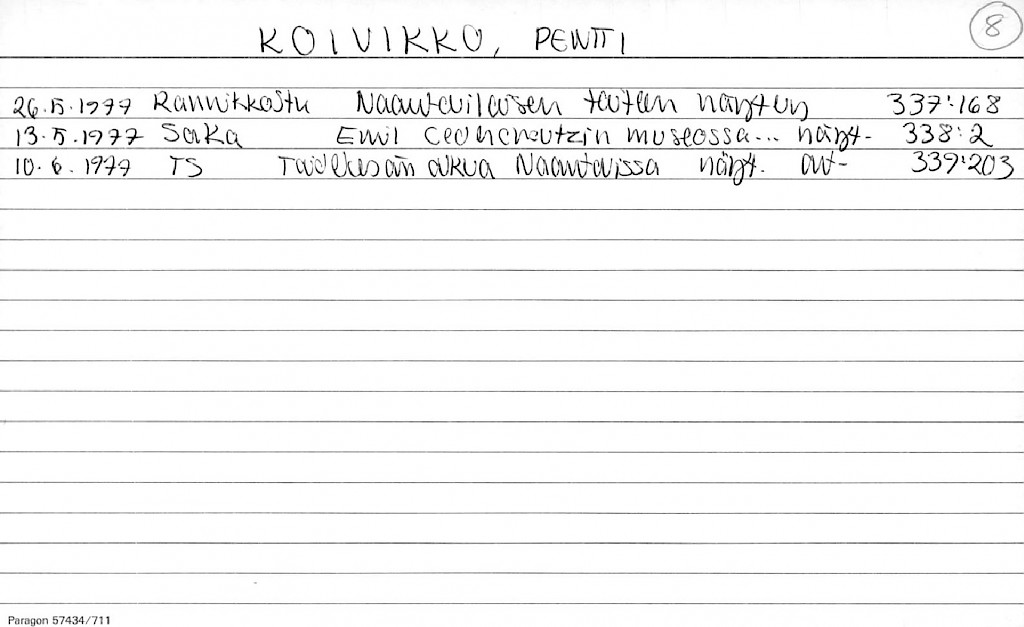 KOIVIKKO, PENTTI
8
26.5.1977 RannikkoStu Naantalilaisen taiteen näyttely 337:168
13.5.1977 SaKa Emil Cedercreutzin museossa... näytt- 338:2
10.6.1977 TS Taidekesän alkua Naantalissa näytt. av- 339:203
Paragon 57434/711